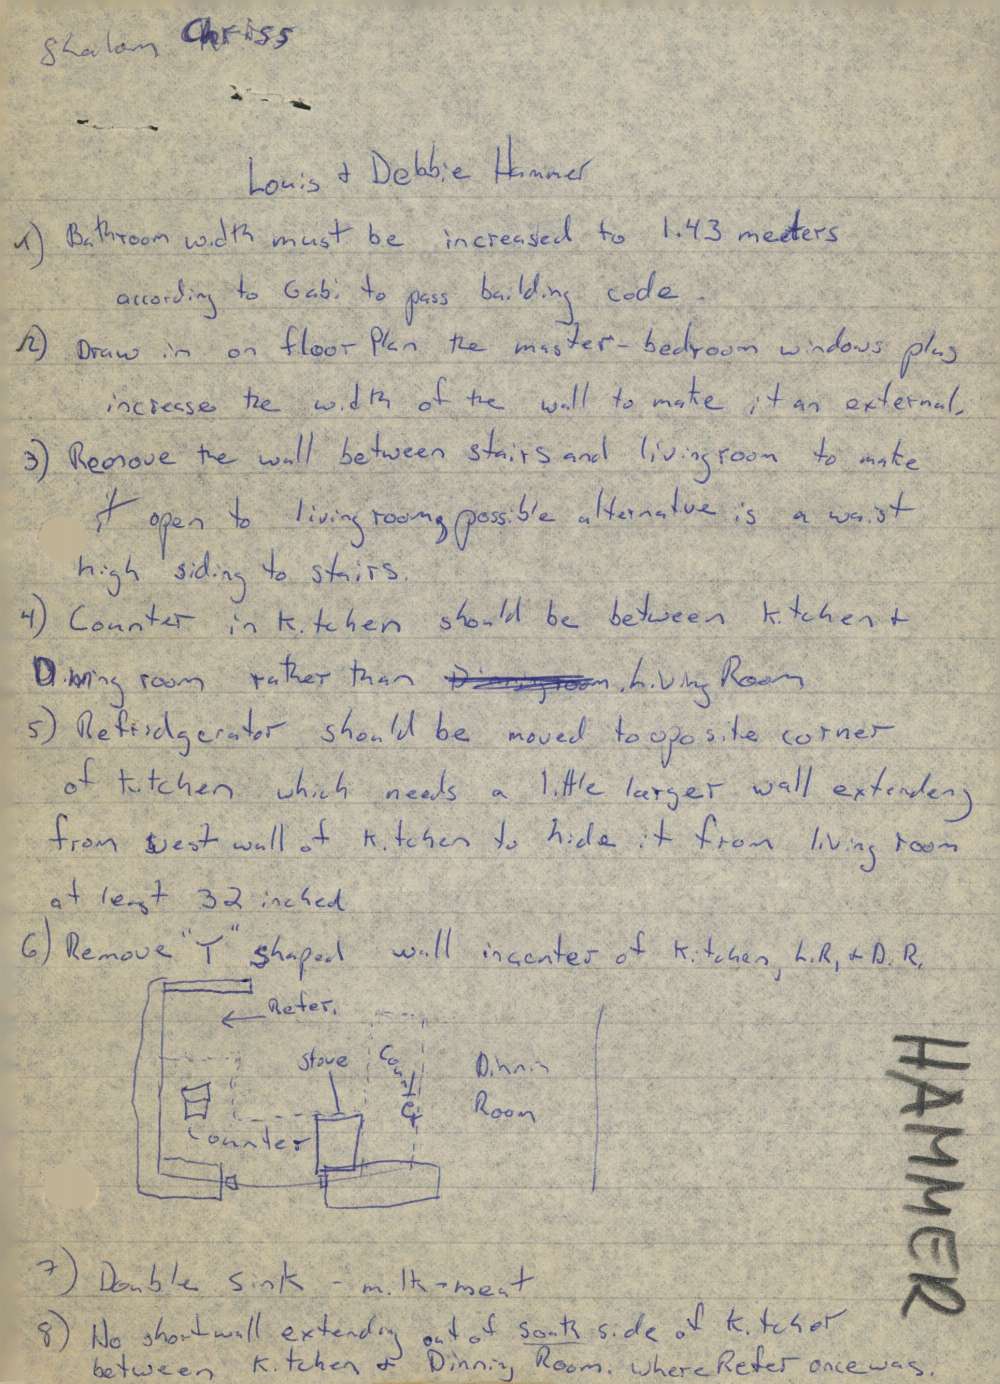 Shalom Chriss
Louis + Debbie Hammer
1) Bathroom width must be increased to 1.43 meters
according to Gabi to pass building code.
2) Draw in on floor Plan the master-bedroom windows plus
increase the width of the wall to make it an external.
3) Remove the wall between stairs and livingroom to make
it open to living room, possible alternative is a waist
high siding to stairs.
4) Counter in Kitchen should be between Kitchen +
Dinning room rather than Living Room
5) Refridgerator should be moved to oposite corner
of Kitchen which needs a little larger wall extending
from west wall of Kitchen to hide it from living room
at least 32 inched
6) Remove "T" shaped wall in center of Kitchen, L.R, + D.R.
Refer.
stove
Counter
Dinnin
Room
Counter
HAMMER
7) Double sink - milk-meat
8) No short wall extending out of south side of Kitchen
between Kitchen + Dinning Room. where Refer once was.